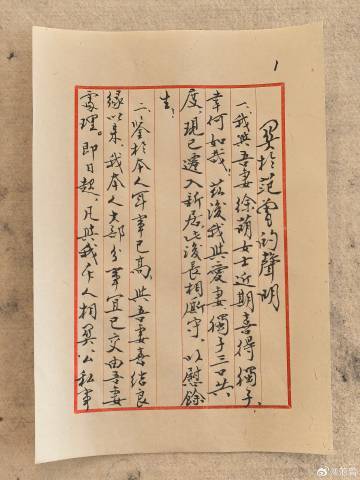 1
關於范曾的聲明
一、我與吾妻徐萌女士近期喜得獨子,
幸何如哉。茲後我與愛妻獨子三口共
度,現已遷入新居,此後長相廝守,以慰餘
生!
二、鑒於本人年事已高,與吾妻喜結良
緣以來,我本人大部分事宜已交由吾妻
處理。即日起,凡與我本人相關公私事
@范曾